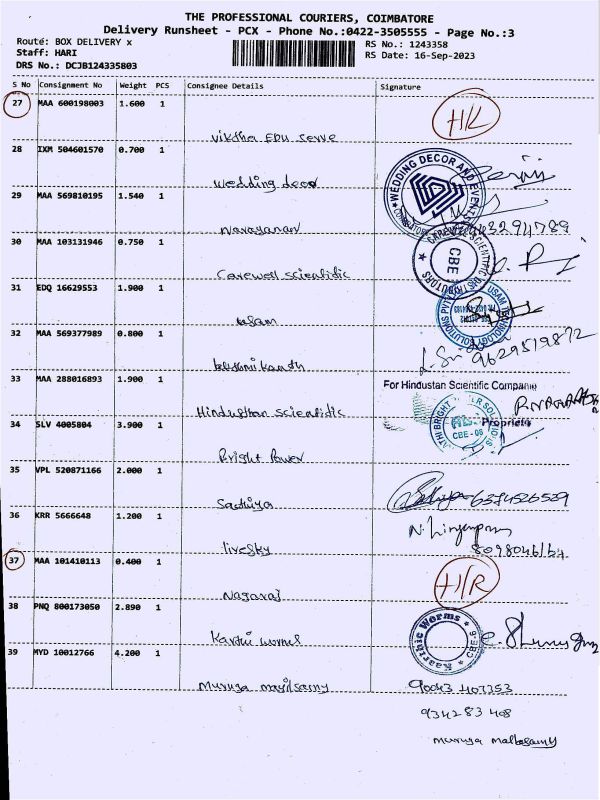 THE PROFESSIONAL COURIERS, COIMBATORE
Delivery Runsheet - PCX - Phone No.:0422-3505555 - Page No.:3
Route: BOX DELIVERY x
RS No.: 1243358
Staff: HARI
RS Date: 16-Sep-2023
DRS No.: DCJB124335803
S No Consignment No Weight PCS Consignee Details Signature
27 MAA 600198003 1.600 1
Viktha EDU Serve
28 IXM 504601570 0.700 1
Wedding decor
WEDDING DECOR AND EVENT
29 MAA 569810195 1.540 1
Narayanan
30 MAA 103131946 0.750 1
Carewell scientific
CBE
31 EDQ 16629553 1.900 1
USAM TECHNOLOGY SOLUTIONS PVT
32 MAA 569377989 0.800 1
9629519872
33 MAA 288016893 1.900 1
Hindusthan scientific
For Hindustan Scientific Company
34 SLV 4005804 3.900 1
Bright Power
CBE - 06
35 VPL 520871166 2.000 1
Sathiya
6374526539
36 KRR 5666648 1.200 1
livesky
37 MAA 101410113 0.400 1
Nagaraj
38 PNQ 800173050 2.890 1
Karthi worms
Kaarthic Worms
CBE-6
39 MYD 10012766 4.200 1
Muruga
90043 407353
934283 408
muruga